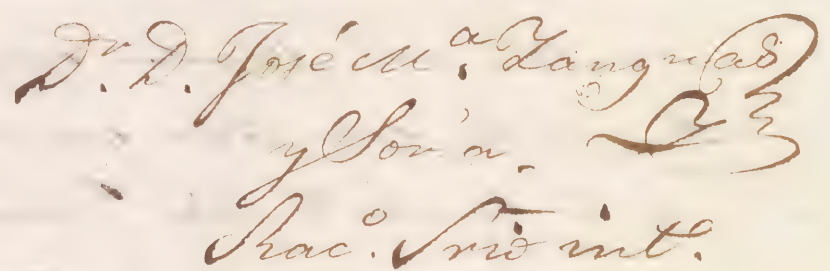 Dr. D. José Ma. Zanguas
y Soria.
Raco. Srio intо.